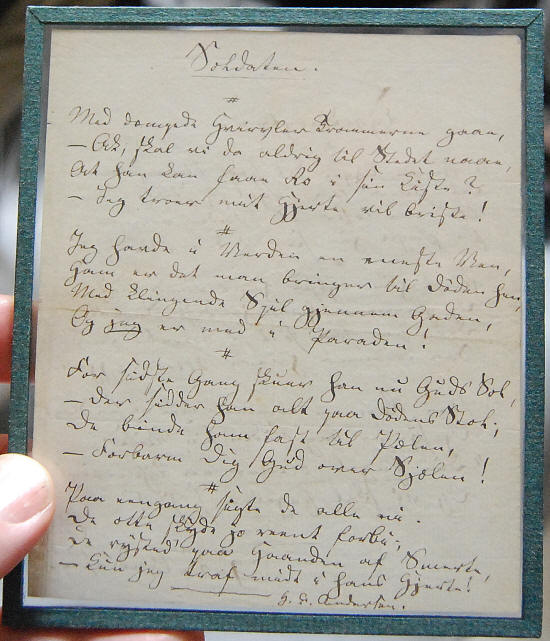 Soldaten.
Med dæmpede Hvirvler Trommerne gaae,
– Ak, skal vi da aldrig til Stedet naae,
At han kan faae Ro i sin Kiste?
– Jeg troer mit Hjerte vil briste!
Jeg havde i Verden en eneste Ven,
Ham er det man bringer til Døden hen,
Med klingende Spil gjennem Gaden,
Og jeg er med i Paraden!
For sidste Gang skuer han nu Guds Sol,
– Der sidder han alt paa Dødens Stol;
De binde ham fast til Pælen,
– Forbarm Dig Gud over Sjælen!
Paa eengang sigte de alle ni.
De otte skyde jo reent forbi;
De rysted' paa Haanden af Smerte,
– Kun jeg traf midt i hans Hjerte!
H. C. Andersen.